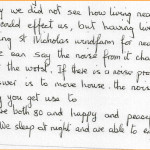 y we did not see how living near
would effect us, but having livi
g St Nicholas windfarm for near
e can say the noise from it cha
the worst. If there is a noise pro
wer is to move house. the nois
y you get use to
e both 80 and happy and peacef
We sleep at night and are able to e